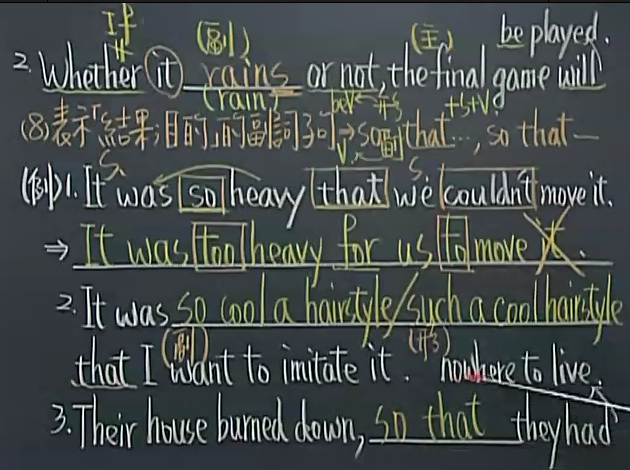 If (副) (主) be played.
2. Whether it rains or not, the final game will
(rain) beV 形 +S+V
(8)表示「結果;目的」的副詞子句⇒so 副 that…, so that—
V S S
(例)1. It was so heavy that we couldn't move it.
⇒ It was too heavy for us to move it.
2. It was so cool a hairstyle/such a cool hairstyle
(副) (形)
that I want to imitate it. nowhere to live.
3. Their house burned down, so that they had